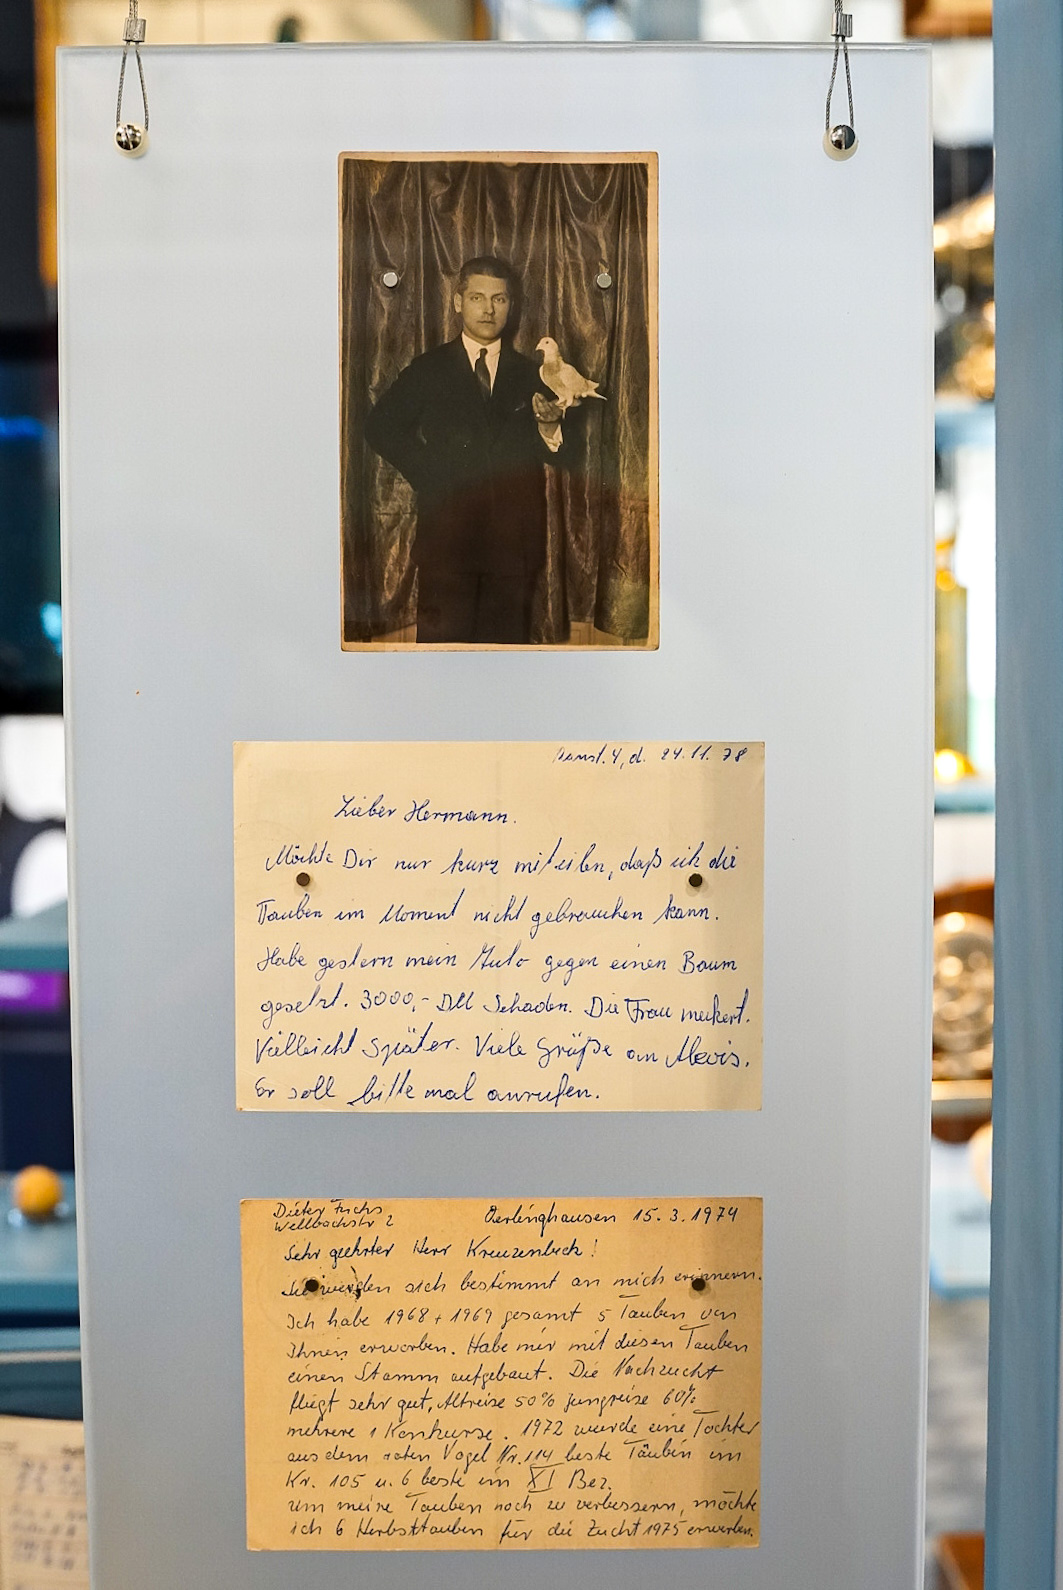 d. 24.11.78
Lieber Hermann.
Möchte Dir nur kurz mitteilen, daß ich die
Tauben im Moment nicht gebrauchen kann.
Habe gestern mein Auto gegen einen Baum
gesetzt. 3000,- DM Schaden. Die Frau meckert.
Vielleicht später. Viele Grüße an Alovis.
Er soll bitte mal anrufen.
Dieter Fuchs
Wellbachstr 2
Oerlinghausen 15.3.1974
Sehr geehrter Herr Kreuzenbeck!
Sie werden sich bestimmt an mich erinnern.
Ich habe 1968 + 1969 gesamt 5 Tauben von
Ihnen erworben. Habe mir mit diesen Tauben
einen Stamm aufgebaut. Die Nachzucht
fliegt sehr gut, Altreise 50% Jungreise 60%
mehrere 1 Konkurse. 1972 wurde eine Tochter
aus dem roten Vogel Nr. 114 beste Täubin im
Kr. 105 u. 6 beste im XI Bez.
Um meine Tauben noch zu verbessern, möchte
ich 6 Herbsttauben für die Zucht 1975 erwerben.